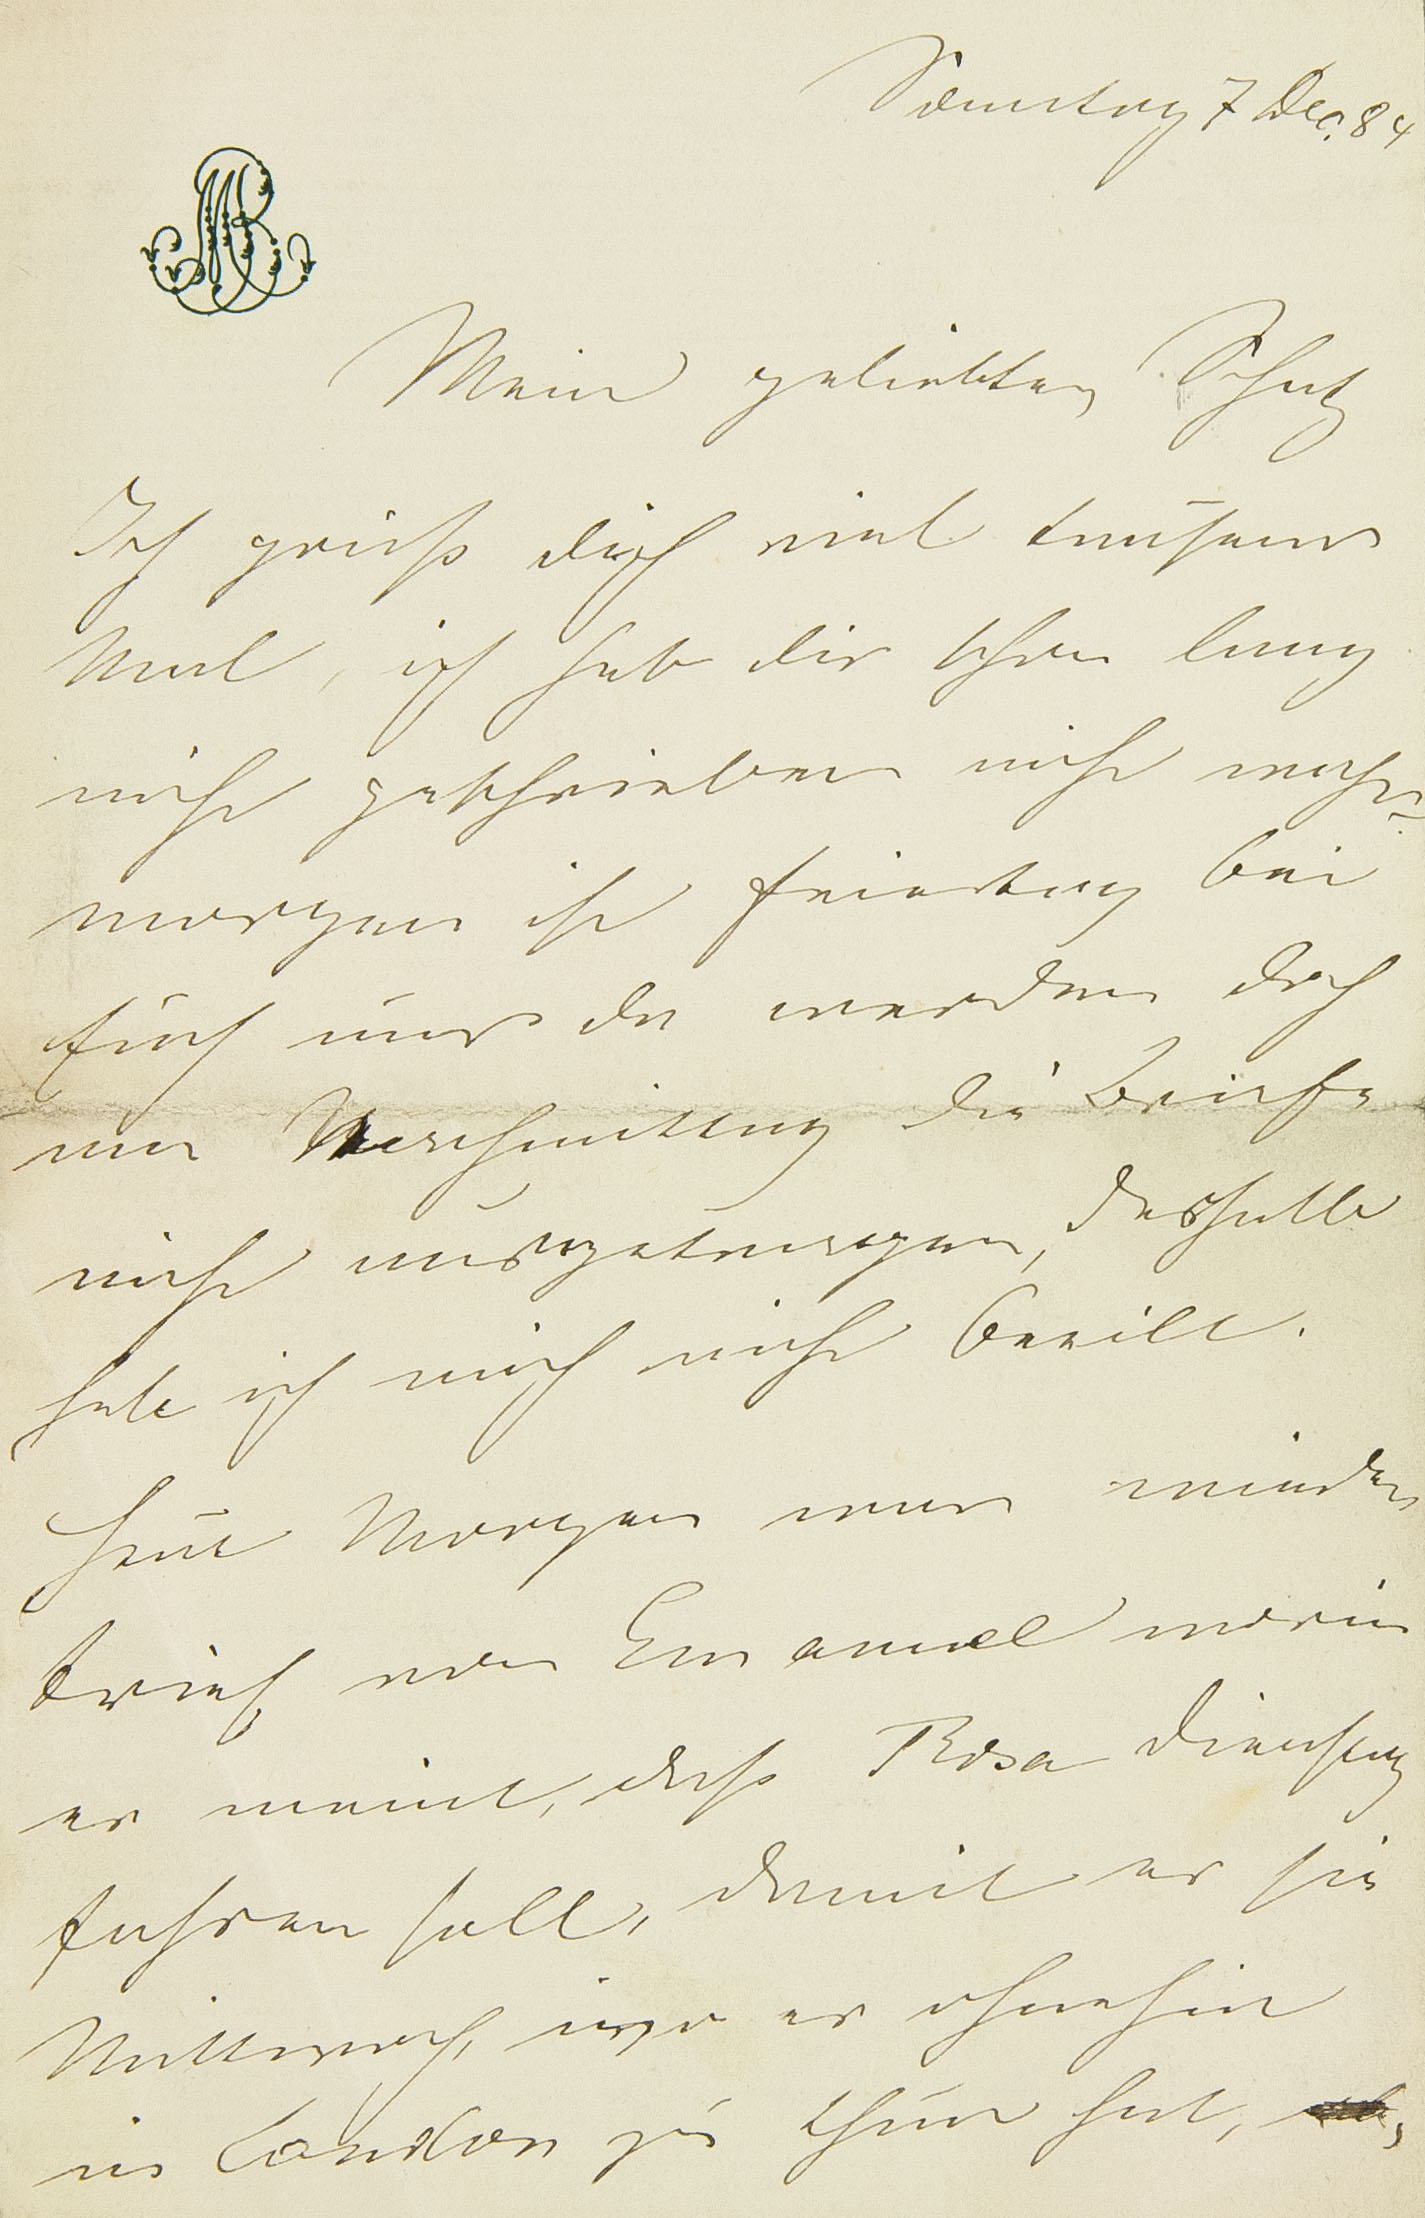 Sonntag 7 Dec. 84
MB
Mein geliebter Schatz
Ich grüß dich viel tausend
Mal, ich hab dir schon lang
nicht geschrieben nicht wahr?
morgen ist Feiertag bei
Euch und da werden doch
am Nachmittag die Briefe
nicht ausgetragen, deshalb
habe ich mich nicht beeilt.
Heut Morgen kam wieder
Brief von Emanuel worin
er meint, daß Rosa Dienstag
fahren soll, damit er sie
Mittwoch, wo er ohnehin
in London zu thun hat,